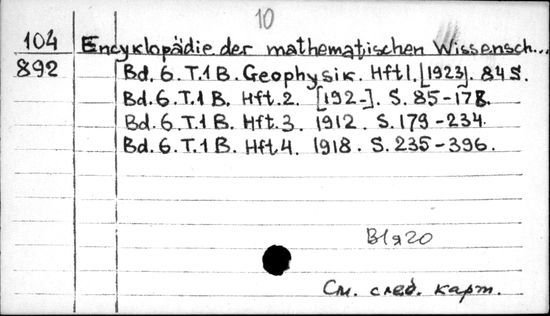 10
104 Encyklopädie der mathematischen Wissensch...
892 Bd. 6. T.1 B. Geophysik. Hft 1. [1923]. 84 S.
Bd. 6. T.1 B. Hft. 2. [192-]. S. 85-178.
Bd. 6. T.1 B. Hft. 3. 1912. S. 179-234.
Bd. 6. T.1 B. Hft. 4. 1918. S. 235-396.
В1я20
См. след. карт.